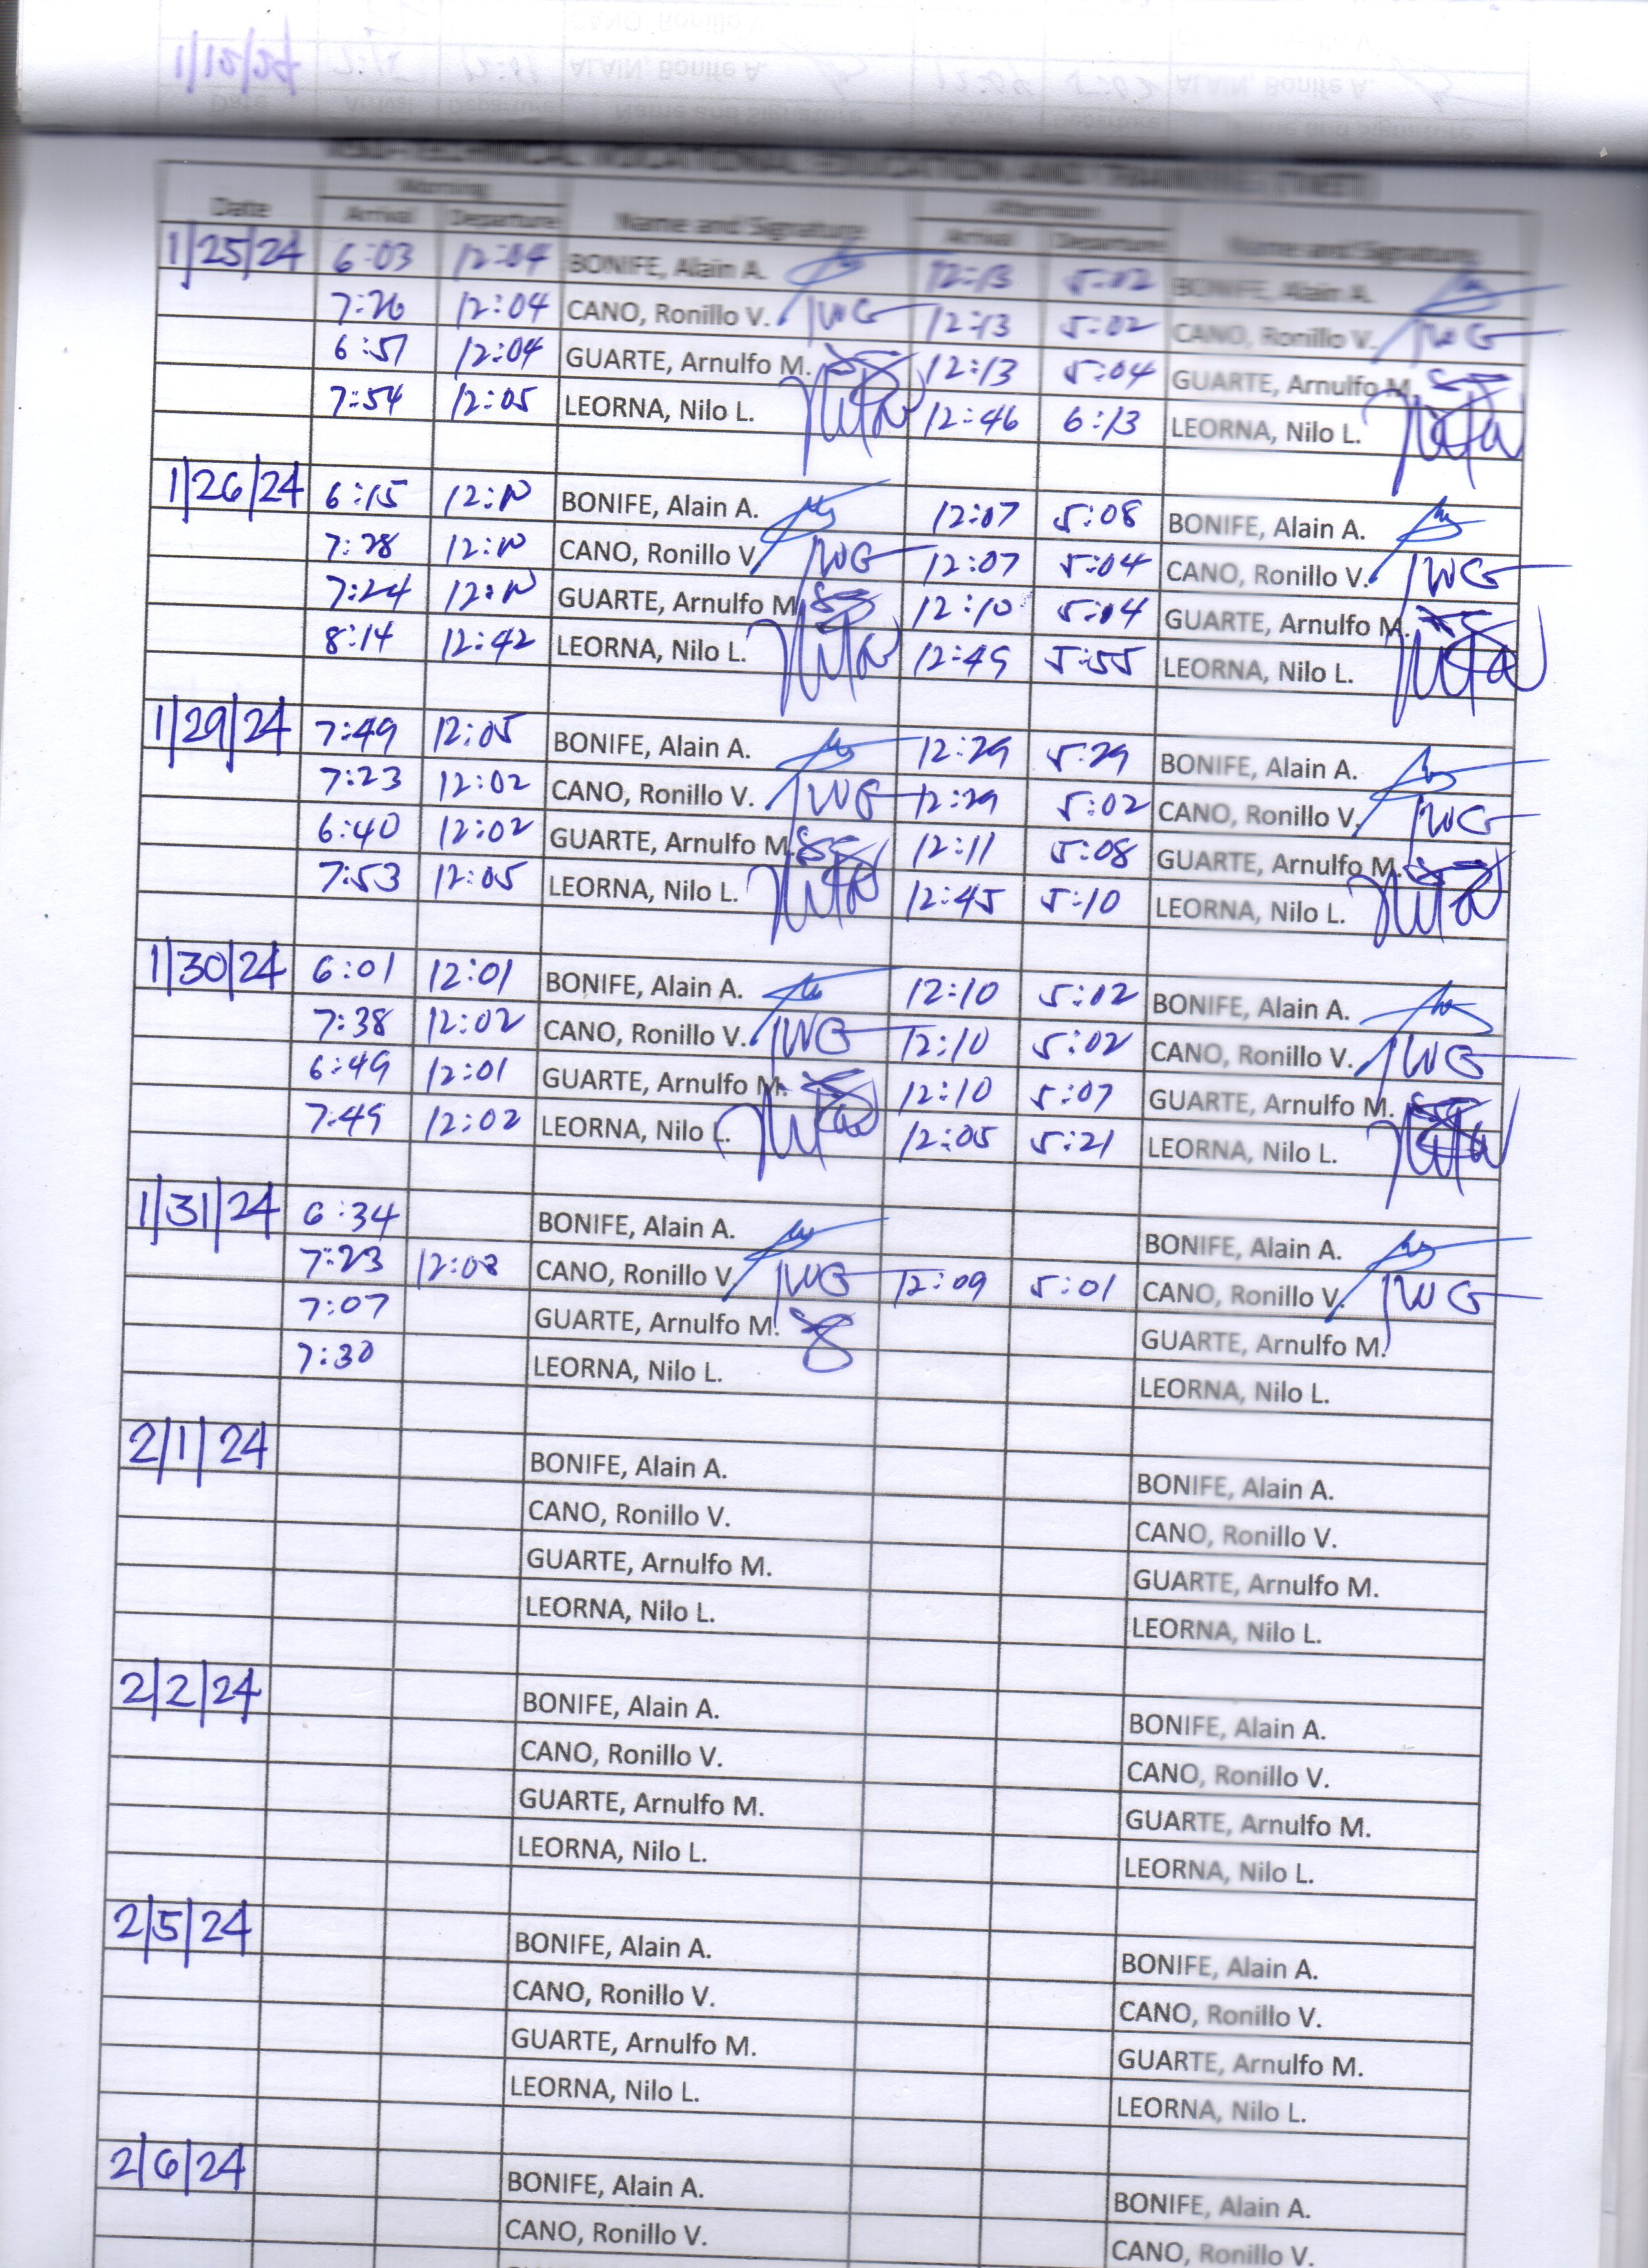 TECHNICAL VOCATIONAL EDUCATION AND TRAINING (TVET)
Morning Afternoon
Date Arrival Departure Name and Signature Arrival Departure Name and Signature
1/25/24 6:03 12:04 BONIFE, Alain A. 12:13 5:02 BONIFE, Alain A.
7:26 12:04 CANO, Ronillo V. 12:13 5:02 CANO, Ronillo V.
6:51 12:04 GUARTE, Arnulfo M. 12:13 5:04 GUARTE, Arnulfo M.
7:54 12:05 LEORNA, Nilo L. 12:46 6:13 LEORNA, Nilo L.
1/26/24 6:15 BONIFE, Alain A. 12:07 5:08 BONIFE, Alain A.
7:28 CANO, Ronillo V. 12:07 5:04 CANO, Ronillo V.
7:24 GUARTE, Arnulfo M. 12:10 5:04 GUARTE, Arnulfo M.
8:14 12:42 LEORNA, Nilo L. 12:49 5:55 LEORNA, Nilo L.
1/29/24 7:49 12:05 BONIFE, Alain A. 12:29 5:29 BONIFE, Alain A.
7:23 12:02 CANO, Ronillo V. 12:29 5:02 CANO, Ronillo V.
6:40 12:02 GUARTE, Arnulfo M. 12:11 5:08 GUARTE, Arnulfo M.
7:53 12:05 LEORNA, Nilo L. 12:45 5:10 LEORNA, Nilo L.
1/30/24 6:01 12:01 BONIFE, Alain A. 12:10 5:02 BONIFE, Alain A.
7:38 12:02 CANO, Ronillo V. 12:10 5:02 CANO, Ronillo V.
6:49 12:01 GUARTE, Arnulfo M. 12:10 5:07 GUARTE, Arnulfo M.
7:49 12:02 LEORNA, Nilo L. 12:05 5:21 LEORNA, Nilo L.
1/31/24 6:34 BONIFE, Alain A. BONIFE, Alain A.
7:23 12:08 CANO, Ronillo V. 12:09 5:01 CANO, Ronillo V.
7:07 GUARTE, Arnulfo M. GUARTE, Arnulfo M.
7:30 LEORNA, Nilo L. LEORNA, Nilo L.
2/1/24 BONIFE, Alain A. BONIFE, Alain A.
CANO, Ronillo V. CANO, Ronillo V.
GUARTE, Arnulfo M. GUARTE, Arnulfo M.
LEORNA, Nilo L. LEORNA, Nilo L.
2/2/24 BONIFE, Alain A. BONIFE, Alain A.
CANO, Ronillo V. CANO, Ronillo V.
GUARTE, Arnulfo M. GUARTE, Arnulfo M.
LEORNA, Nilo L. LEORNA, Nilo L.
2/5/24 BONIFE, Alain A. BONIFE, Alain A.
CANO, Ronillo V. CANO, Ronillo V.
GUARTE, Arnulfo M. GUARTE, Arnulfo M.
LEORNA, Nilo L. LEORNA, Nilo L.
2/6/24 BONIFE, Alain A. BONIFE, Alain A.
CANO, Ronillo V. CANO, Ronillo V.